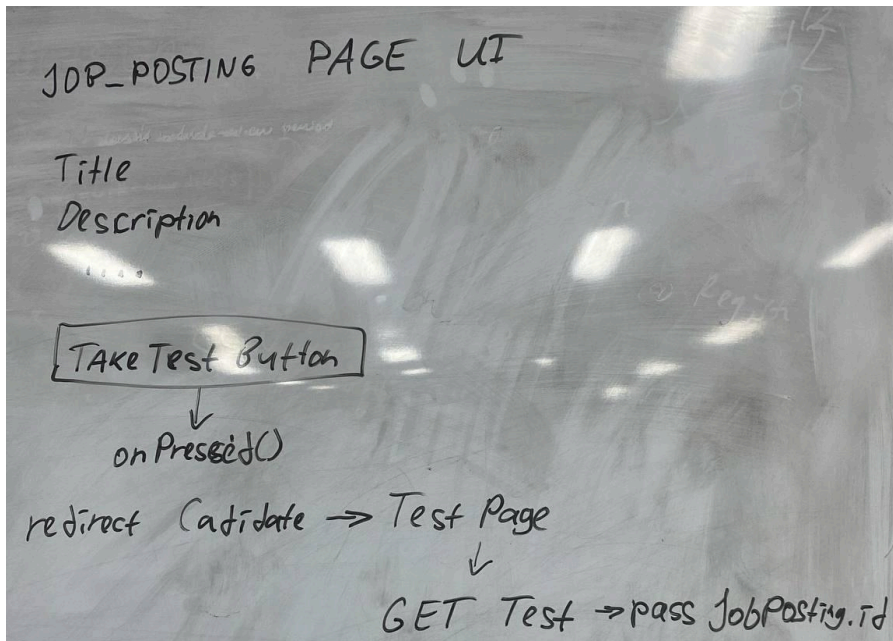 JOB_POSTING PAGE UI
Title
Description
....
TAKE Test Button
↓
onPressed()
redirect Cadidate → Test Page
↓
GET Test → pass JobPosting.id